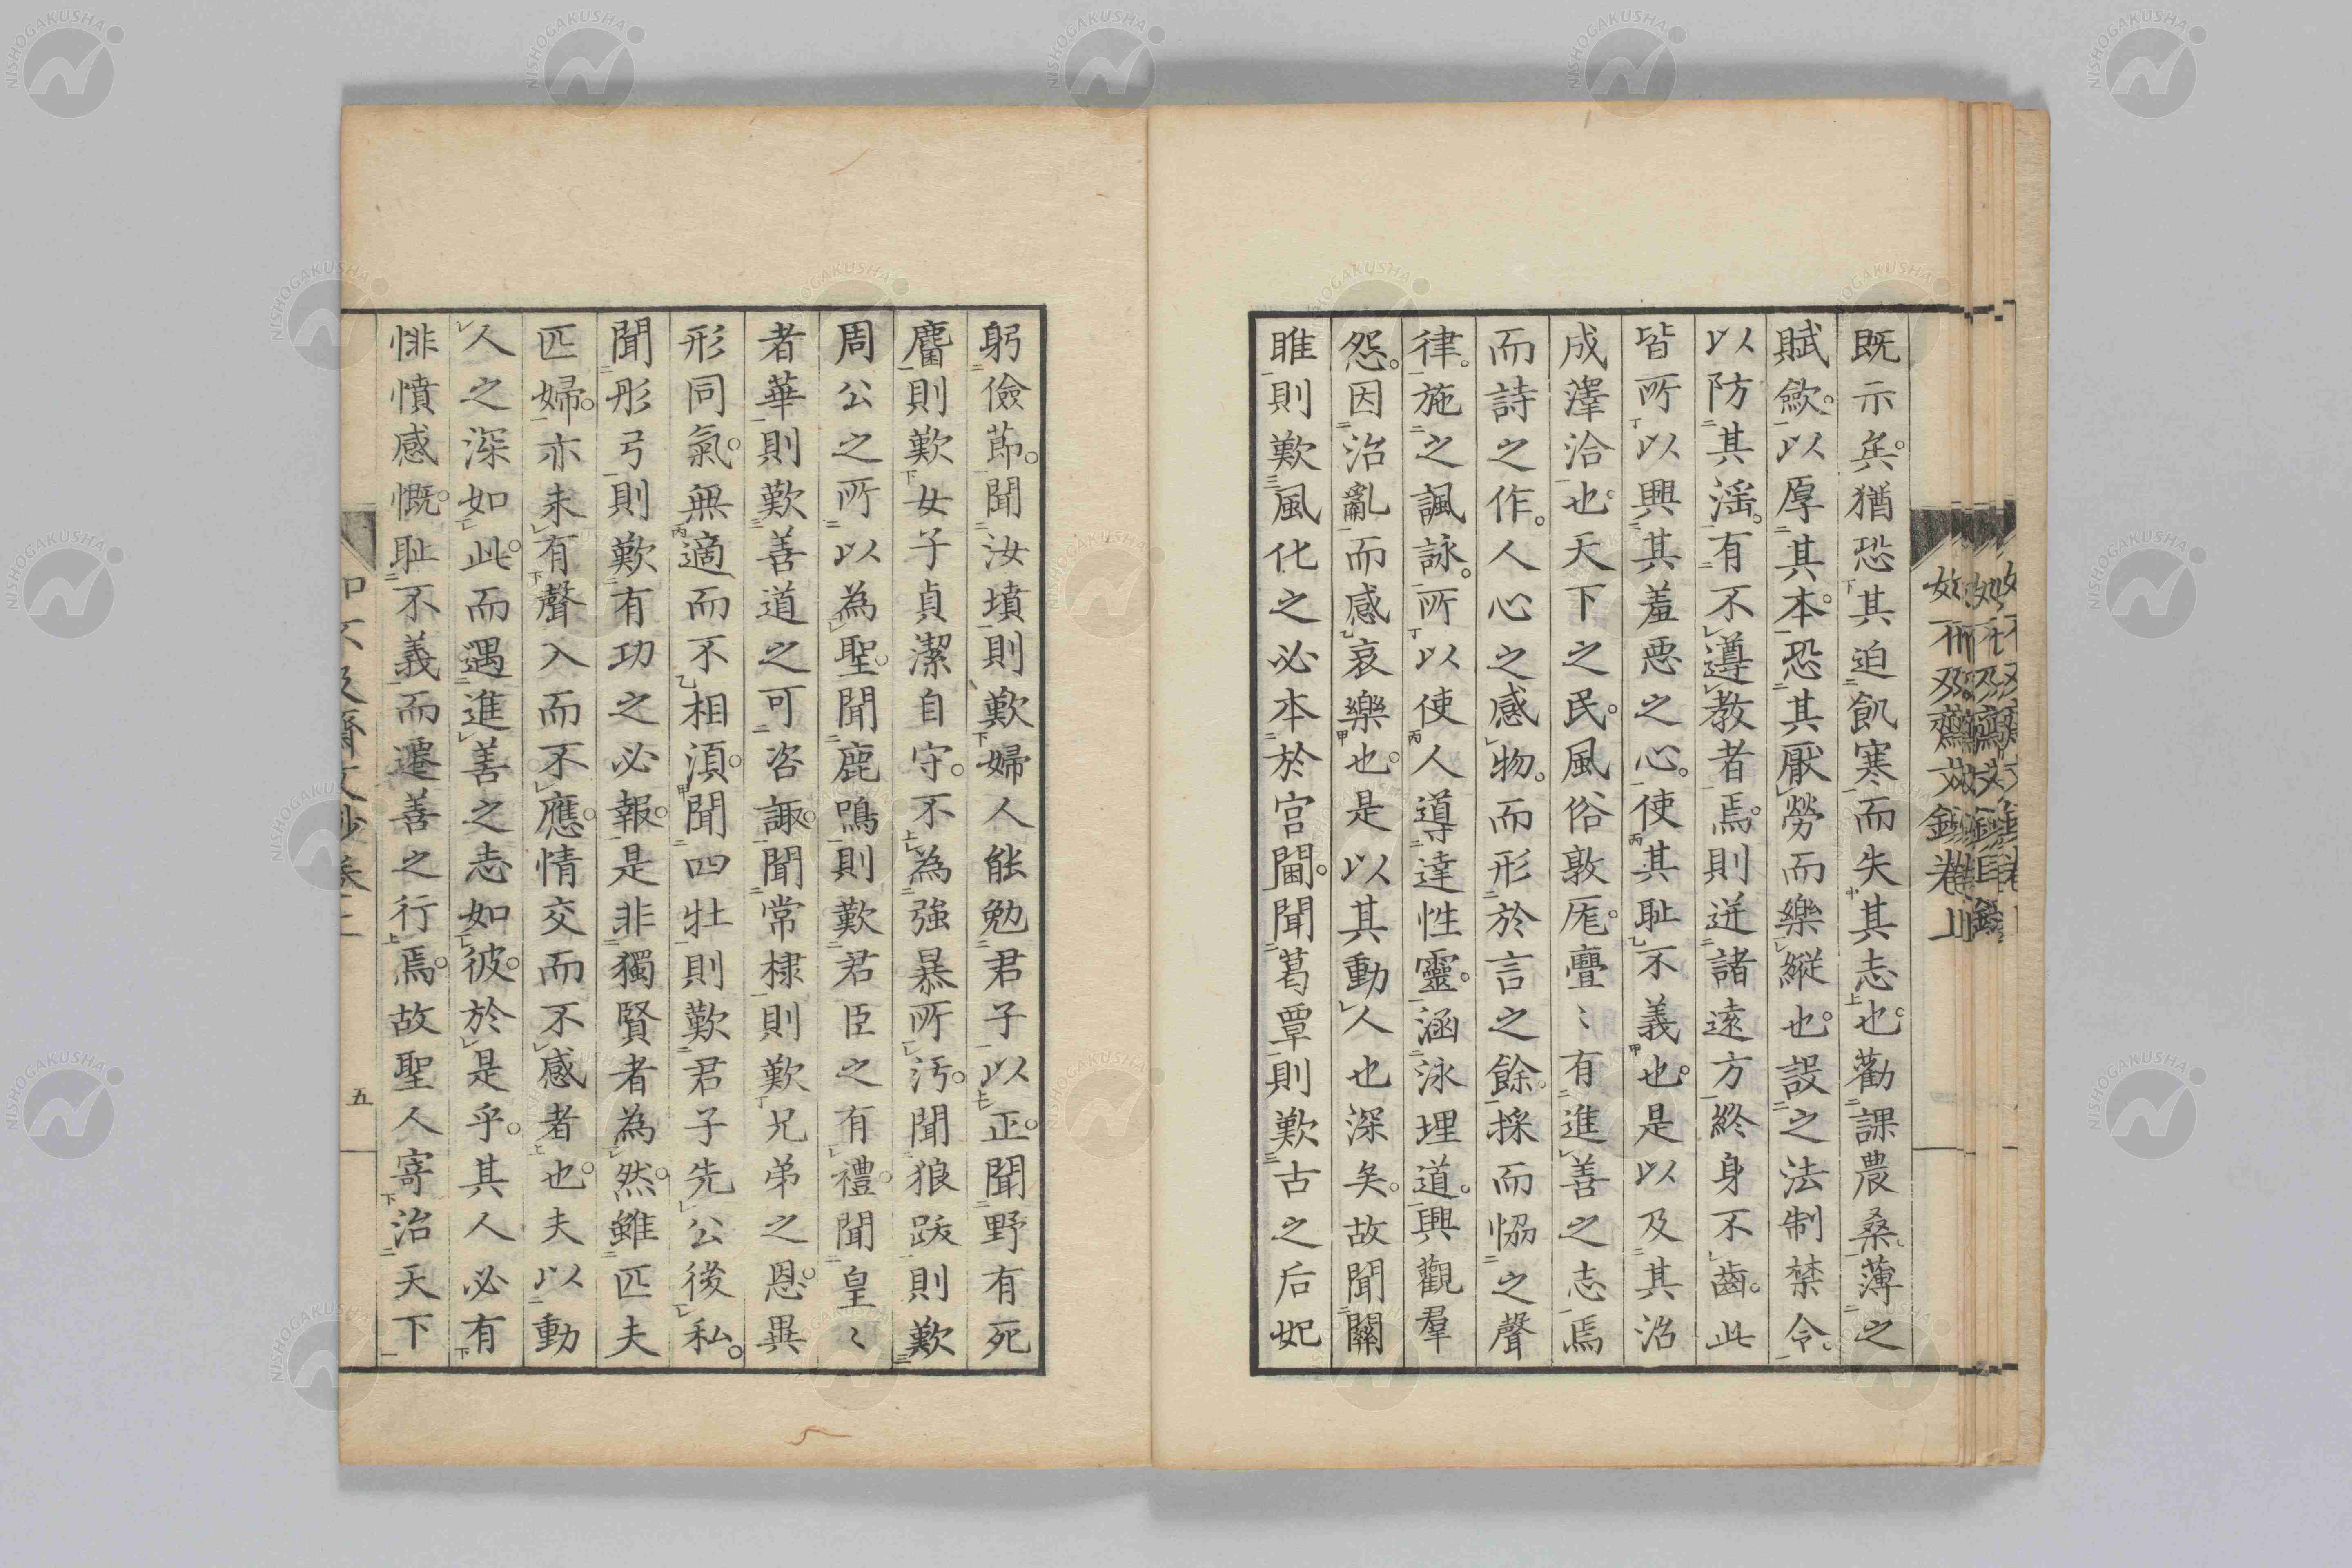 既示矣。猶恐其迫飢寒而失其志也。勸課農桑。薄之
賦斂。以厚其本。恐其厭勞而樂縱也。設之法制禁令。
以防其淫。有不遵教者焉。則迸諸遠方終身不齒。此
皆所以興其羞惡之心。使其耻不義也。是以及其治
成澤洽也。天下之民。風俗敦厖。亹〻有進善之志焉
而詩之作。人心之感物。而形於言之餘。採而恊之聲
律。施之諷詠。所以使人導達性靈。涵泳埋道。興觀羣
怨。因治亂而感哀樂也。是以其動人也深矣。故聞關
雎則歎風化之必本於宮閫。聞葛覃則歎古之后妃
躬儉莭。聞汝墳則歎婦人能勉君子以正。聞野有死
麕則歎女子貞潔自守。不為強暴所汚。聞狼跋則歎
周公之所以為聖。聞鹿鳴則歎君臣之有禮。聞皇〻
者華則歎善道之可咨諏。聞常棣則歎兄弟之恩。異
形同氣。無適而不相須。聞四牡則歎君子先公後私。
聞彤弓則歎有功之必報。是非獨賢者為然。雖匹夫
匹婦。亦未有聲入而不應。情交而不感者也。夫以動
人之深如此。而遇進善之志如彼。於是乎。其人必有
悱憤感慨。耻不義而遷善之行焉。故聖人寄治天下
五